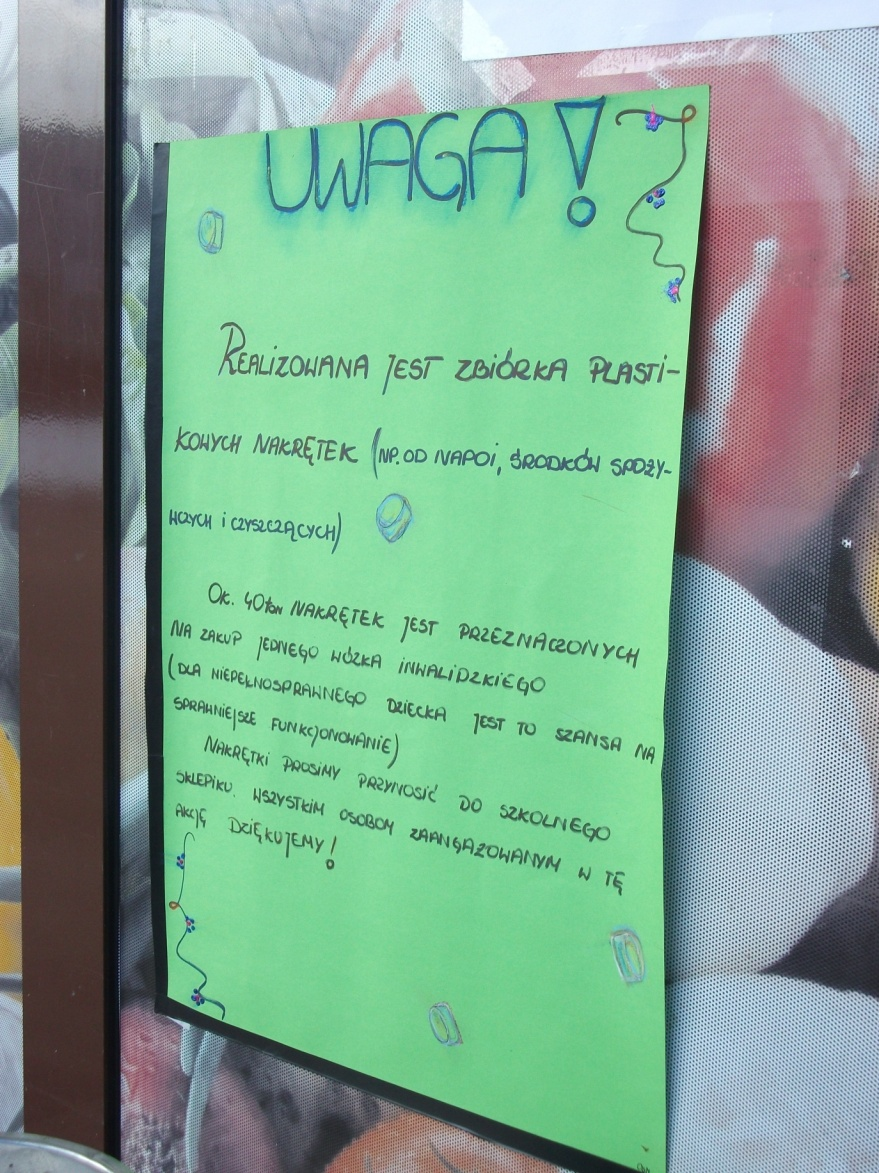 UWAGA!
REALIZOWANA JEST ZBIÓRKA PLASTI-
KOWYCH NAKRĘTEK (NP. OD NAPOI, ŚRODKÓW SPOŻY-
WCZYCH i CZYSZCZĄCYCH)
OK. 40 ton NAKRĘTEK JEST PRZEZNACZONYCH
NA ZAKUP JEDNEGO WÓZKA INWALIDZKIEGO
(DLA NIEPEŁNOSPRAWNEGO DZIECKA JEST TO SZANSA NA
SPRAWNIEJSZE FUNKCJONOWANIE)
NAKRĘTKI PROSIMY PRZYNOSIĆ DO SZKOLNEGO
SKLEPIKU. WSZYSTKIM OSOBOM ZAANGAŻOWANYM W TĘ
AKCJĘ DZIĘKUJEMY!